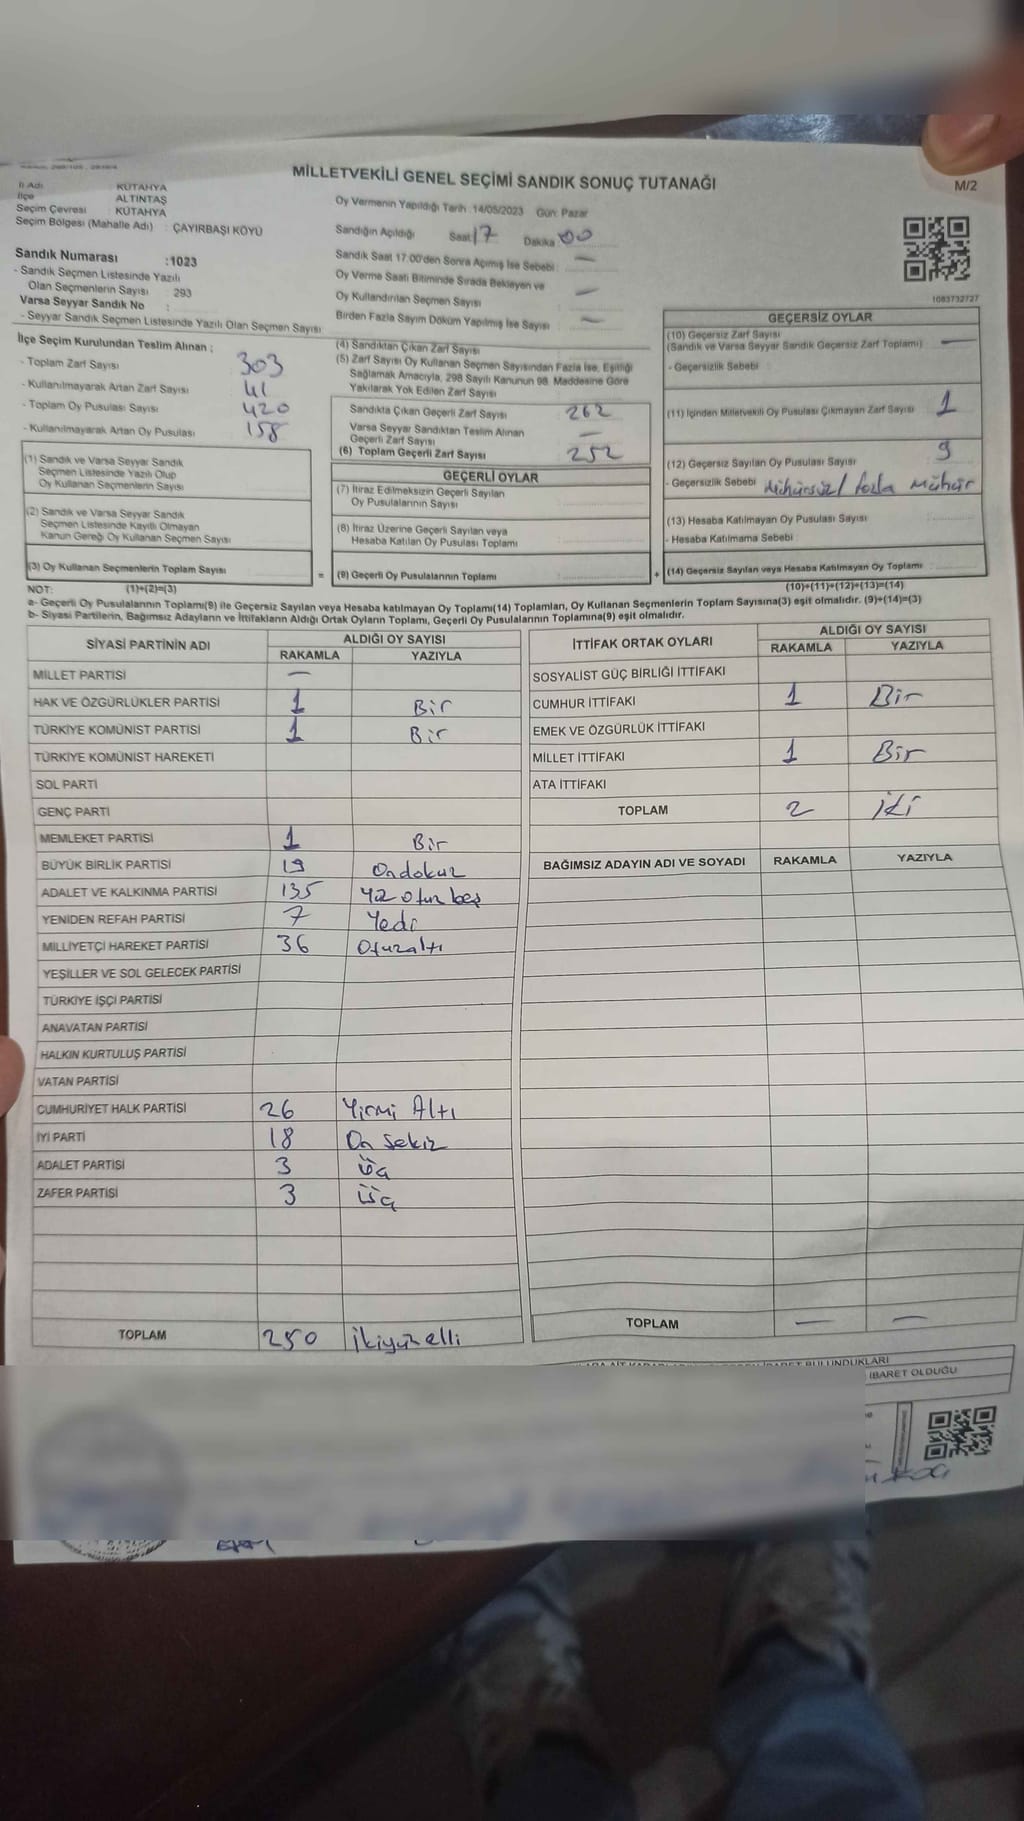 MİLLETVEKİLİ GENEL SEÇİMİ SANDIK SONUÇ TUTANAĞI
M/2
İl Adı : KÜTAHYA
İlçe : ALTINTAŞ
Seçim Çevresi : KÜTAHYA
Seçim Bölgesi (Mahalle Adı) : ÇAYIRBAŞI KÖYÜ
Oy Vermenin Yapıldığı Tarih :14/05/2023 Gün: Pazar
Sandığın Açıldığı Saat 17 Dakika 00
Sandık Numarası :1023
- Sandık Seçmen Listesinde Yazılı
Olan Seçmenlerin Sayısı : 293
Varsa Seyyar Sandık No :
- Seyyar Sandık Seçmen Listesinde Yazılı Olan Seçmen Sayısı:
Sandık Saat 17.00'den Sonra Açılmış İse Sebebi : —
Oy Verme Saati Bitiminde Sırada Bekleyen ve
Oy Kullandırılan Seçmen Sayısı : —
Birden Fazla Sayım Döküm Yapılmış İse Sayısı : —
1083732727
İlçe Seçim Kurulundan Teslim Alınan ;
- Toplam Zarf Sayısı 303
- Kullanılmayarak Artan Zarf Sayısı 41
- Toplam Oy Pusulası Sayısı 420
- Kullanılmayarak Artan Oy Pusulası 158
(1) Sandık ve Varsa Seyyar Sandık
Seçmen Listesinde Yazılı Olup
Oy Kullanan Seçmenlerin Sayısı
(2) Sandık ve Varsa Seyyar Sandık
Seçmen Listesinde Kayıtlı Olmayan
Kanun Gereği Oy Kullanan Seçmen Sayısı
(3) Oy Kullanan Seçmenlerin Toplam Sayısı
(4) Sandıktan Çıkan Zarf Sayısı
(5) Zarf Sayısı Oy Kullanan Seçmen Sayısından Fazla İse, Eşitliği
Sağlamak Amacıyla, 298 Sayılı Kanunun 98. Maddesine Göre
Yakılarak Yok Edilen Zarf Sayısı
Sandıkta Çıkan Geçerli Zarf Sayısı 262
Varsa Seyyar Sandıktan Teslim Alınan
Geçerli Zarf Sayısı —
(6) Toplam Geçerli Zarf Sayısı 252
GEÇERLİ OYLAR
(7) İtiraz Edilmeksizin Geçerli Sayılan
Oy Pusulalarının Sayısı
(8) İtiraz Üzerine Geçerli Sayılan veya
Hesaba Katılan Oy Pusulası Toplamı
= (9) Geçerli Oy Pusulalarının Toplamı
GEÇERSİZ OYLAR
(10) Geçersiz Zarf Sayısı
(Sandık ve Varsa Seyyar Sandık Geçersiz Zarf Toplamı) —
- Geçersizlik Sebebi
(11) İçinden Milletvekili Oy Pusulası Çıkmayan Zarf Sayısı 1
(12) Geçersiz Sayılan Oy Pusulası Sayısı 9
- Geçersizlik Sebebi Mühürsüz/ fazla mühür
(13) Hesaba Katılmayan Oy Pusulası Sayısı
- Hesaba Katılmama Sebebi
+ (14) Geçersiz Sayılan veya Hesaba Katılmayan Oy Toplamı
NOT: (1)+(2)=(3) (10)+(11)+(12)+(13)=(14)
a- Geçerli Oy Pusulalarının Toplamı(9) ile Geçersiz Sayılan veya Hesaba katılmayan Oy Toplamı(14) Toplamları, Oy Kullanan Seçmenlerin Toplam Sayısına(3) eşit olmalıdır. (9)+(14)=(3)
b- Siyasi Partilerin, Bağımsız Adayların ve İttifakların Aldığı Ortak Oyların Toplamı, Geçerli Oy Pusulalarının Toplamına(9) eşit olmalıdır.
SİYASİ PARTİNİN ADI ALDIĞI OY SAYISI
RAKAMLA YAZIYLA
MİLLET PARTİSİ —
HAK VE ÖZGÜRLÜKLER PARTİSİ 1 Bir
TÜRKİYE KOMÜNİST PARTİSİ 1 Bir
TÜRKİYE KOMÜNİST HAREKETİ
SOL PARTİ
GENÇ PARTİ
MEMLEKET PARTİSİ 1 Bir
BÜYÜK BİRLİK PARTİSİ 19 Ondokuz
ADALET VE KALKINMA PARTİSİ 135 Yüz Otuz beş
YENİDEN REFAH PARTİSİ 7 Yedi
MİLLİYETÇİ HAREKET PARTİSİ 36 Otuzaltı
YEŞİLLER VE SOL GELECEK PARTİSİ
TÜRKİYE İŞÇİ PARTİSİ
ANAVATAN PARTİSİ
HALKIN KURTULUŞ PARTİSİ
VATAN PARTİSİ
CUMHURİYET HALK PARTİSİ 26 Yirmi Altı
İYİ PARTİ 18 On Sekiz
ADALET PARTİSİ 3 üç
ZAFER PARTİSİ 3 üç
TOPLAM 250 ikiyüzelli
İTTİFAK ORTAK OYLARI ALDIĞI OY SAYISI
RAKAMLA YAZIYLA
SOSYALİST GÜÇ BİRLİĞİ İTTİFAKI
CUMHUR İTTİFAKI 1 Bir
EMEK VE ÖZGÜRLÜK İTTİFAKI
MİLLET İTTİFAKI 1 Bir
ATA İTTİFAKI
TOPLAM 2 iki
BAĞIMSIZ ADAYIN ADI VE SOYADI RAKAMLA YAZIYLA
TOPLAM — —
BULUNDUKLARI
İBARET OLDUĞU